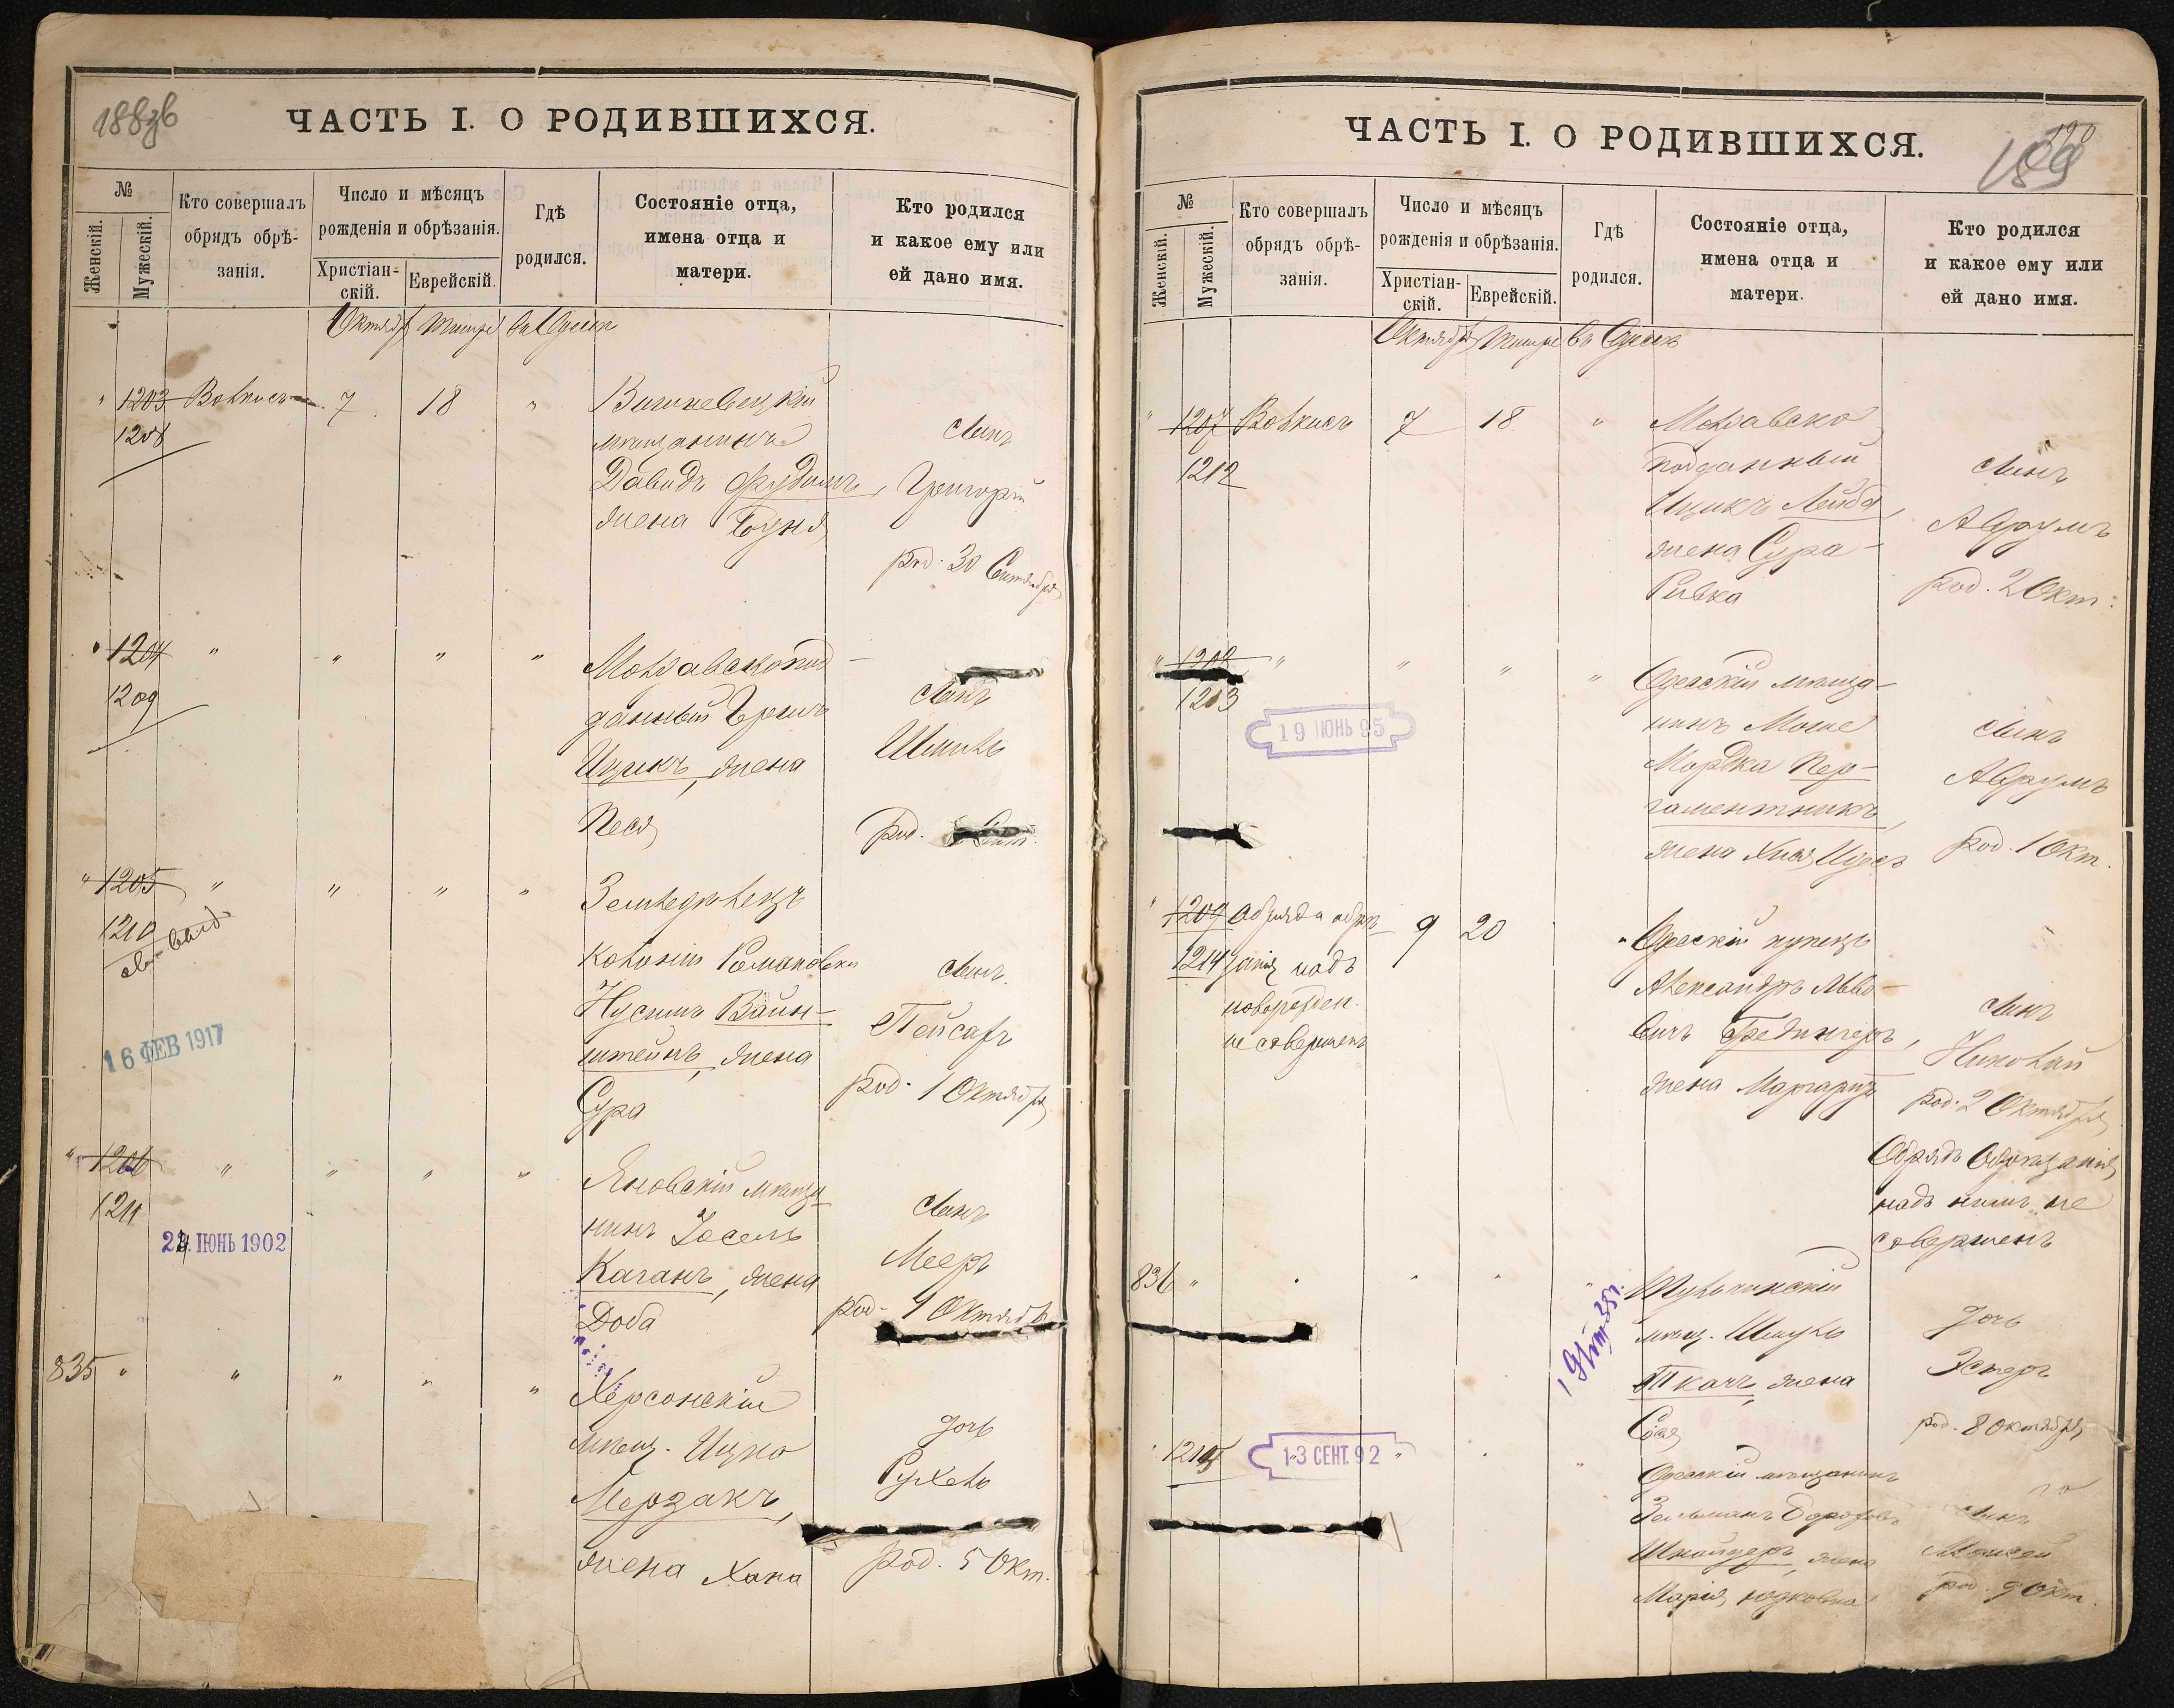 188
ЧАСТЬ I. О РОДИВШИХСЯ.
№
Женскій.
Мужескій.
Кто совершалъ
обрядъ обрѣ-
занія.
Число и мѣсяцъ
рожденія и обрѣзанія.
Христіан-
скій.
Еврейскій.
Гдѣ
родился.
Состояніе отца,
имена отца и
матери.
Кто родился
и какое ему или
ей дано имя.
Октябрь Тишре въ Одессѣ
" 1203 7 18 "
1208
мѣщанинъ
Давидъ
жена
сынъ
Григорій
род. 30 Сентября
" 1204 " " " "
1209
Молдавскопод-
данный Гершъ
Ицикъ, жена
Песя
сынъ
Шмиль
род.
" 1205 " " " "
1210
16 ФЕВ 1917
Земледѣлецъ
колоніи Романовки
Нусимъ Вайн-
штейнъ, жена
Сура
сынъ
Пейсахъ
род. 1 Октября
" 1206 " " " "
1211
ІЮНЬ 1902
Яновскій мѣща-
нинъ Іосель
Каганъ, жена
Доба
сынъ
Мееръ
род. 1 Октября
835 " " " " "
Херсонскій
мѣщ. Ицко
Мерзакъ,
жена Хана
дочь
Рухель
род. 5 Окт.
ЧАСТЬ I. О РОДИВШИХСЯ.
189
№
Женскій.
Мужескій.
Кто совершалъ
обрядъ обрѣ-
занія.
Число и мѣсяцъ
рожденія и обрѣзанія.
Христіан-
скій.
Еврейскій.
Гдѣ
родился.
Состояніе отца,
имена отца и
матери.
Кто родился
и какое ему или
ей дано имя.
Октябрь Тишре въ Одессѣ
" 1207 7 18 "
1212
Молдавско
подданный
Ицикъ Лейба,
жена Сура-
Ривка
сынъ
Абрумъ
род. 2 Окт.
" 1208 " " " "
1213
19 ІЮНЬ 95
Одесскій мѣща-
нинъ Моше
Мордка Пер-
гаментникъ,
жена
сынъ
Абрумъ
род. 1 Окт.
" 1209 Обрядъ обрѣ- 9 20 "
1214 занія надъ
новорожден.
не совершенъ
Одесскій купецъ
Александръ Льво-
вичъ Гредингеръ,
жена Маргарита
сынъ
Николай
род. 2 Октября
Обрядъ Обрѣзанія
надъ нимъ не
совершенъ
836 " " " " "
Тульчинскій
мѣщ. Шмуль
Ткачъ, жена
Сося
дочь
Эстеръ
род. 8 октября
" 1215 " " " "
13 СЕНТ. 92
Одесскій мѣщанинъ
Зельманъ
Шнайдеръ, жена
Марія Юдковна
сынъ
Моисей
род. 9 Окт.